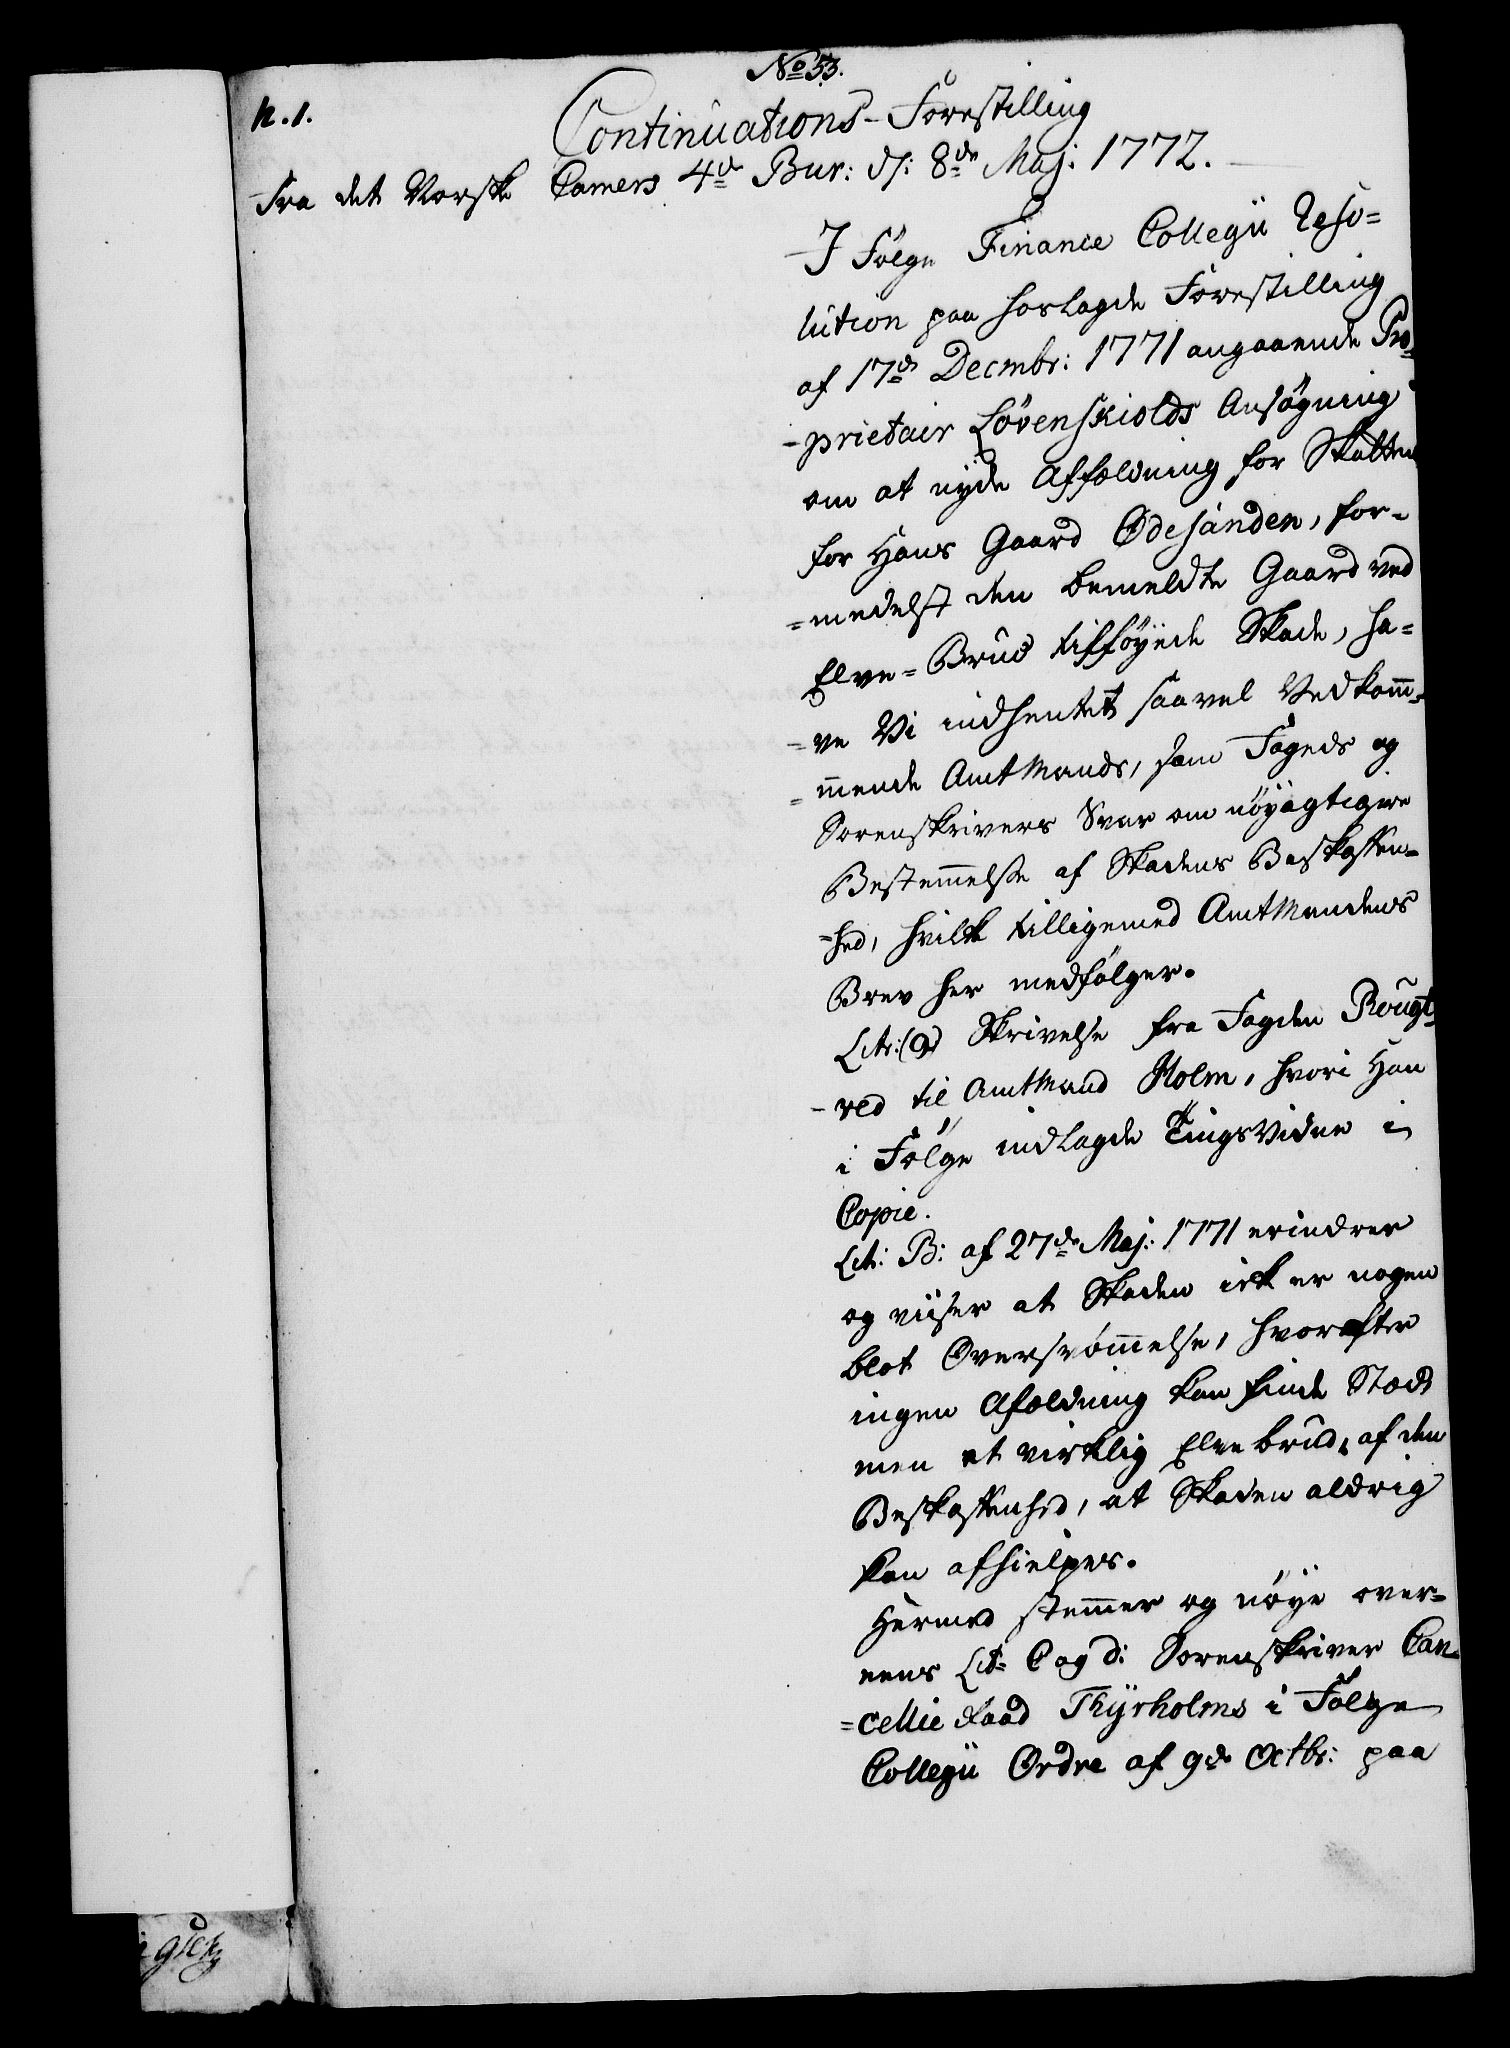 No 53.
n. 1.
Continuations-Forestilling
Fra det Norske Camers 4de Bur: d: 8de Maj: 1772.
I Følge Finance Collegii Reso=
lution paa hoslagde Forestilling
af 17de Decmbr: 1771 angaaende Pro=
-prietair Løvenskiolds Ansøgning
om at nyde Affældning for Skatten
for Hans Gaard Ødesanden, for-
=medelst den bemeldte Gaard ved
Elve-Brud tilføyede Skade, ha=
=ve Vi indhentet saavel Vedkom̄=
=mende Amtmands, som Fogeds og
Sorenskrivers Svar om nøyagtigere
Bestemmelse af Skadens Beskaffen=
=hed, hvilke tilligemed Amtmandens
Brev her medfølger.
Litr: (a) Skrivelse fra Fogden Rougt=
-ved til Amtmand Holm, hvori Han
i Følge indlagde Tingsvidne i
Copie.
Litr: B: af 27de Maj: 1771 erindrer
og viiser at Skaden ick er nogen
blot Oversvømmelse, hvorefter
ingen Afældning kan finde Stæd
men et virklig Elvebrud, af den
Beskaffenhed, at Skaden aldrig
kan afhielpes.
Hermed stemmer og nøye over=
eens Lit: C og D: Sorenskriver Can=
=cellie Raad Thyrholms i Følge
Collegii Ordre af 9de Octbr: paa